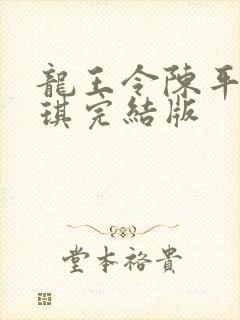 龍王令陳平
琪完結版
堂本裕貴